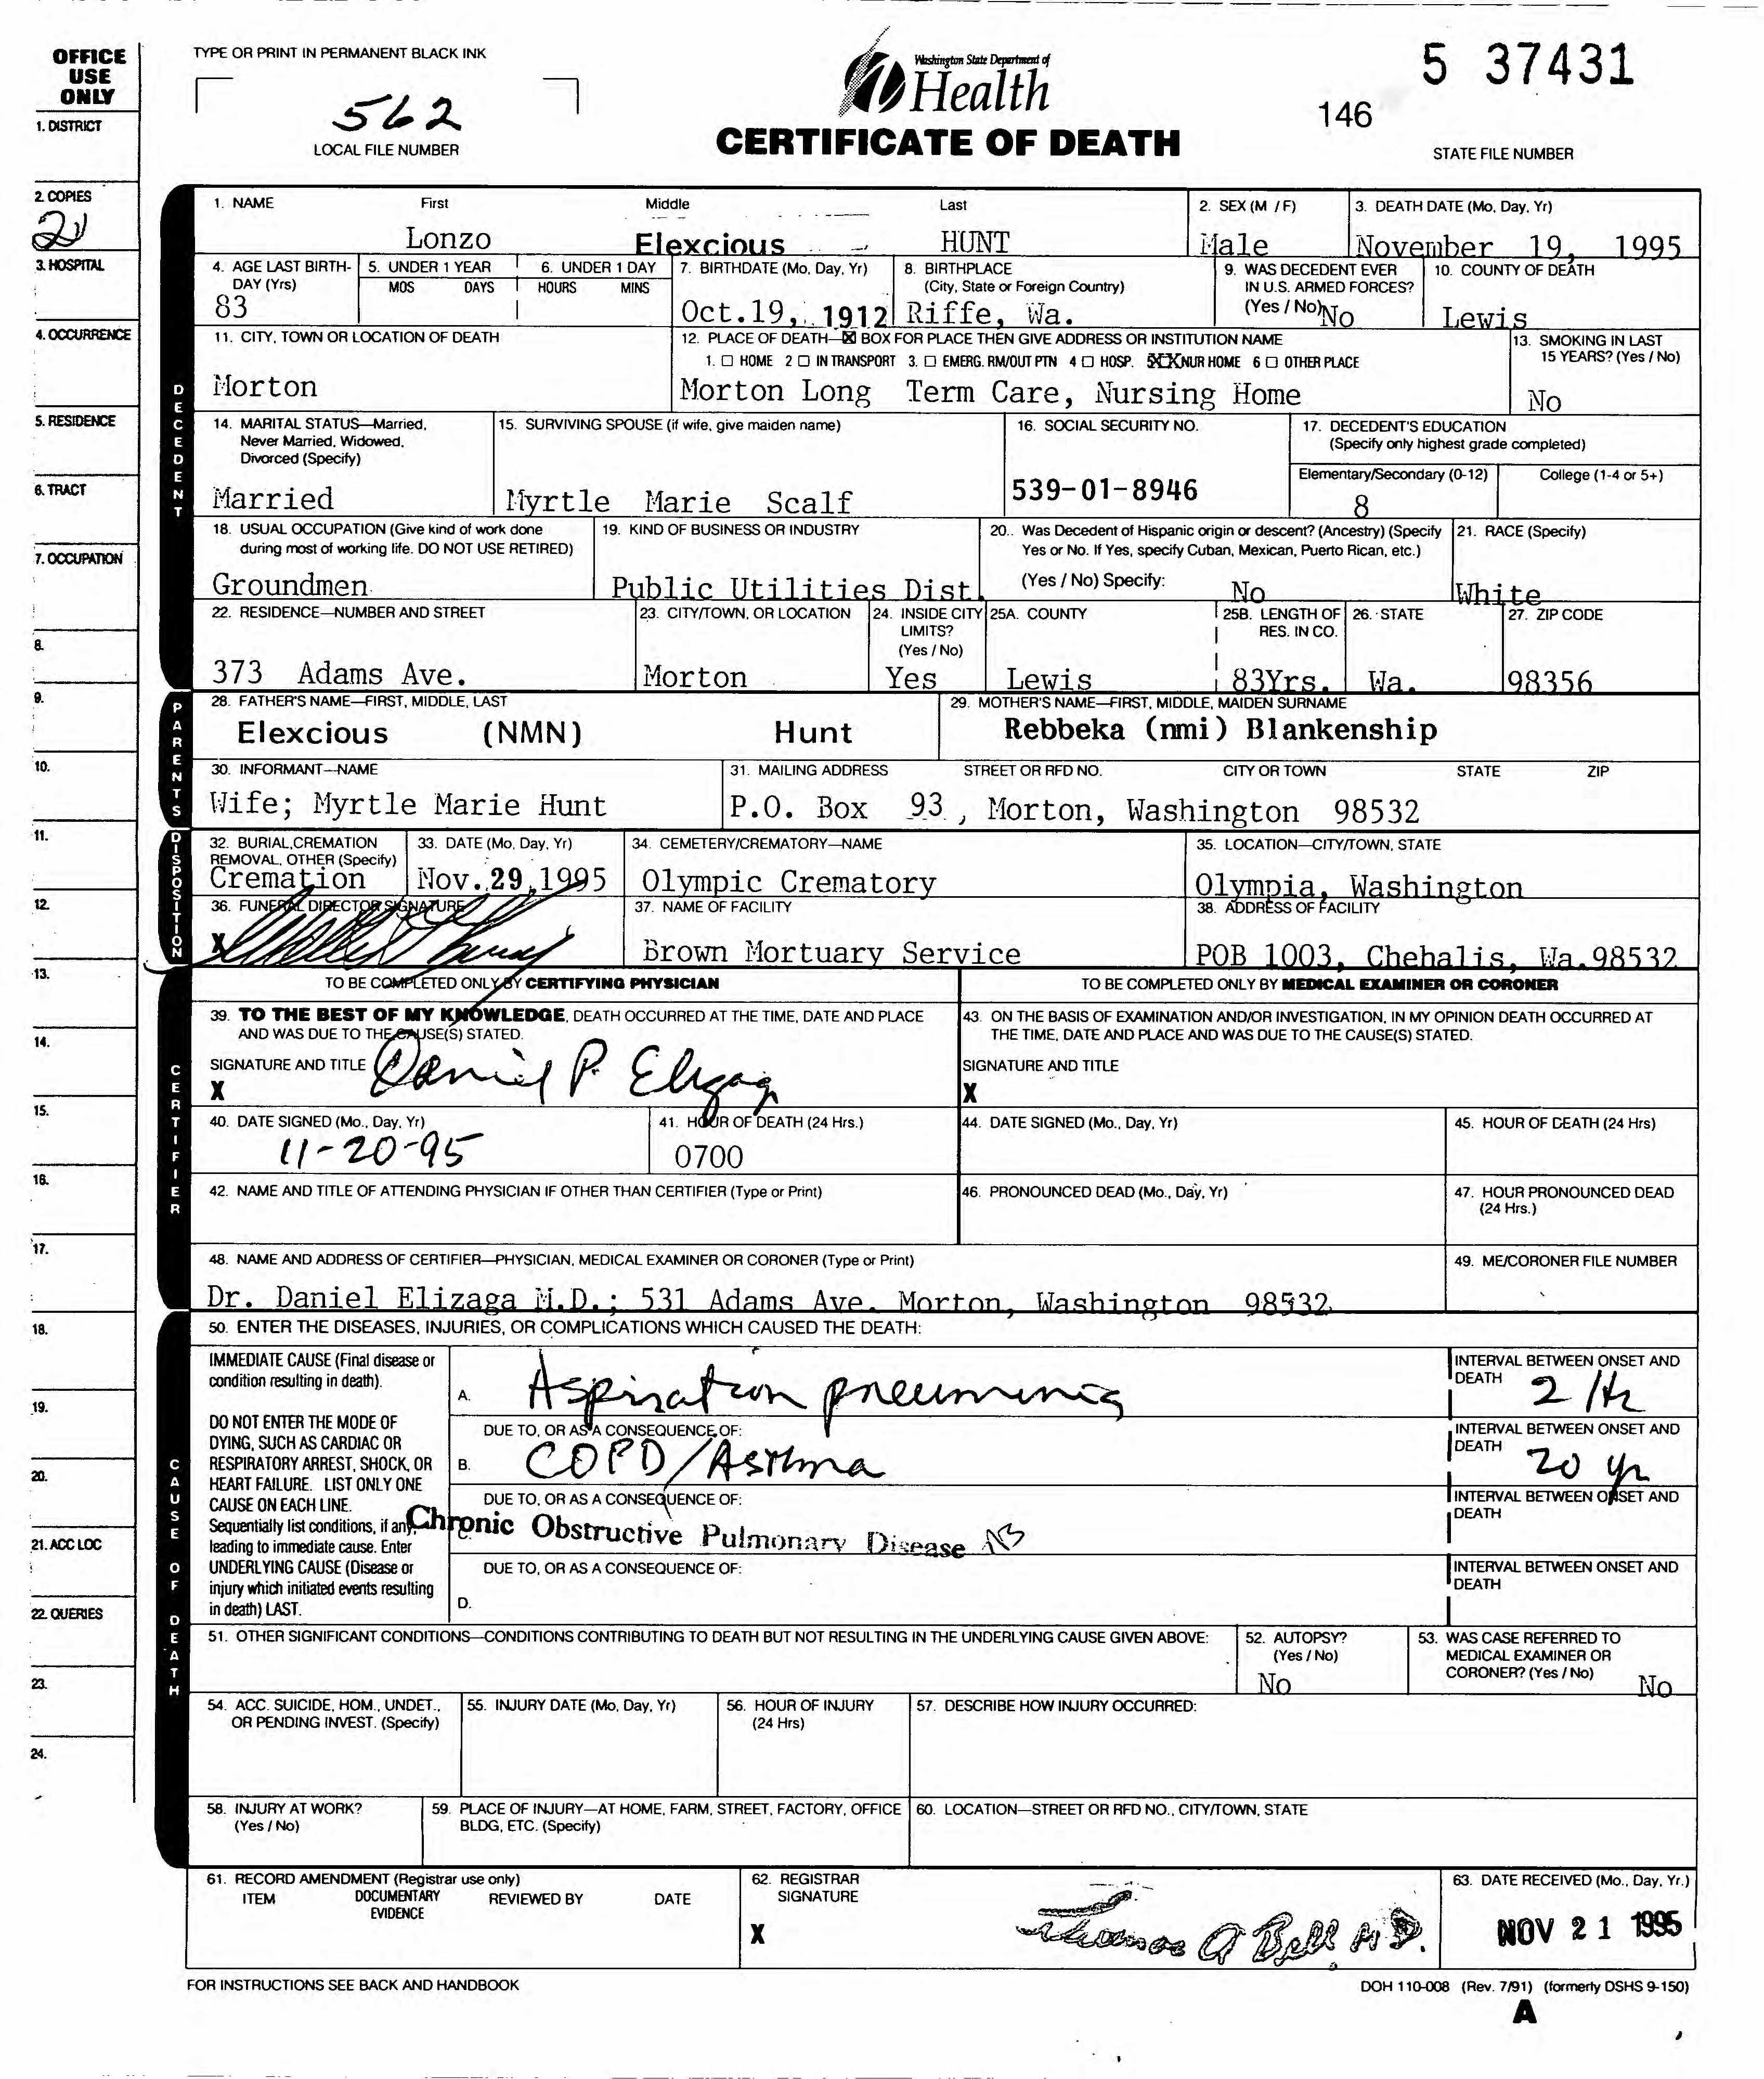 OFFICE USE ONLY
TYPE OR PRINT IN PERMANENT BLACK INK
Washington State Department of
Health
CERTIFICATE OF DEATH
562
LOCAL FILE NUMBER
5 37431
146
STATE FILE NUMBER
1. DISTRICT
2. COPIES
2
3. HOSPITAL
4. OCCURRENCE
5. RESIDENCE
6. TRACT
7. OCCUPATION
8.
9.
10.
11.
12.
13.
14.
15.
16.
17.
18.
19.
20.
21. ACC LOC
22. QUERIES
23.
24.
DECEDENT
1. NAME First Middle Last
Lonzo Elexcious HUNT
2. SEX (M / F)
Male
3. DEATH DATE (Mo, Day, Yr)
November 19, 1995
4. AGE LAST BIRTH-
DAY (Yrs)
83
5. UNDER 1 YEAR
MOS DAYS
6. UNDER 1 DAY
HOURS MINS
7. BIRTHDATE (Mo, Day, Yr)
Oct.19, 1912
8. BIRTHPLACE
(City, State or Foreign Country)
Riffe, Wa.
9. WAS DECEDENT EVER
IN U.S. ARMED FORCES?
(Yes / No)
No
10. COUNTY OF DEATH
Lewis
11. CITY, TOWN OR LOCATION OF DEATH
Morton
12. PLACE OF DEATH—☒ BOX FOR PLACE THEN GIVE ADDRESS OR INSTITUTION NAME
1. ☐ HOME 2 ☐ IN TRANSPORT 3. ☐ EMERG. RM/OUT PTN 4 ☐ HOSP. 5 XX NUR HOME 6 ☐ OTHER PLACE
Morton Long Term Care, Nursing Home
13. SMOKING IN LAST
15 YEARS? (Yes / No)
No
14. MARITAL STATUS—Married,
Never Married, Widowed,
Divorced (Specify)
Married
15. SURVIVING SPOUSE (if wife, give maiden name)
Myrtle Marie Scalf
16. SOCIAL SECURITY NO.
539-01-8946
17. DECEDENT'S EDUCATION
(Specify only highest grade completed)
Elementary/Secondary (0-12) College (1-4 or 5+)
8
18. USUAL OCCUPATION (Give kind of work done
during most of working life. DO NOT USE RETIRED)
Groundmen
19. KIND OF BUSINESS OR INDUSTRY
Public Utilities Dist.
20.. Was Decedent of Hispanic origin or descent? (Ancestry) (Specify
Yes or No. If Yes, specify Cuban, Mexican, Puerto Rican, etc.)
(Yes / No) Specify: No
21. RACE (Specify)
White
22. RESIDENCE—NUMBER AND STREET
373 Adams Ave.
23. CITY/TOWN, OR LOCATION
Morton
24. INSIDE CITY
LIMITS?
(Yes / No)
Yes
25A. COUNTY
Lewis
25B. LENGTH OF
RES. IN CO.
83Yrs.
26. STATE
Wa.
27. ZIP CODE
98356
PARENTS
28. FATHER'S NAME—FIRST, MIDDLE, LAST
Elexcious (NMN) Hunt
29. MOTHER'S NAME—FIRST, MIDDLE, MAIDEN SURNAME
Rebbeka (nmi) Blankenship
30. INFORMANT—NAME
Wife; Myrtle Marie Hunt
31. MAILING ADDRESS STREET OR RFD NO. CITY OR TOWN STATE ZIP
P.O. Box 93, Morton, Washington 98532
DISPOSITION
32. BURIAL,CREMATION
REMOVAL, OTHER (Specify)
Cremation
33. DATE (Mo, Day, Yr)
Nov.29,1995
34. CEMETERY/CREMATORY—NAME
Olympic Crematory
35. LOCATION—CITY/TOWN, STATE
Olympia, Washington
36. FUNERAL DIRECTOR SIGNATURE
X
37. NAME OF FACILITY
Brown Mortuary Service
38. ADDRESS OF FACILITY
POB 1003, Chehalis, Wa.98532
CERTIFIER
TO BE COMPLETED ONLY BY CERTIFYING PHYSICIAN
39. TO THE BEST OF MY KNOWLEDGE, DEATH OCCURRED AT THE TIME, DATE AND PLACE
AND WAS DUE TO THE CAUSE(S) STATED.
SIGNATURE AND TITLE
X Daniel P. Elizaga
40. DATE SIGNED (Mo., Day, Yr)
11-20-95
41. HOUR OF DEATH (24 Hrs.)
0700
42. NAME AND TITLE OF ATTENDING PHYSICIAN IF OTHER THAN CERTIFIER (Type or Print)
TO BE COMPLETED ONLY BY MEDICAL EXAMINER OR CORONER
43. ON THE BASIS OF EXAMINATION AND/OR INVESTIGATION, IN MY OPINION DEATH OCCURRED AT
THE TIME, DATE AND PLACE AND WAS DUE TO THE CAUSE(S) STATED.
SIGNATURE AND TITLE
X
44. DATE SIGNED (Mo., Day, Yr)
45. HOUR OF DEATH (24 Hrs)
46. PRONOUNCED DEAD (Mo., Day, Yr)
47. HOUR PRONOUNCED DEAD
(24 Hrs.)
48. NAME AND ADDRESS OF CERTIFIER—PHYSICIAN, MEDICAL EXAMINER OR CORONER (Type or Print)
Dr. Daniel Elizaga M.D.; 531 Adams Ave. Morton, Washington 98532
49. ME/CORONER FILE NUMBER
CAUSE OF DEATH
50. ENTER THE DISEASES, INJURIES, OR COMPLICATIONS WHICH CAUSED THE DEATH:
IMMEDIATE CAUSE (Final disease or
condition resulting in death).
DO NOT ENTER THE MODE OF
DYING, SUCH AS CARDIAC OR
RESPIRATORY ARREST, SHOCK, OR
HEART FAILURE. LIST ONLY ONE
CAUSE ON EACH LINE.
Sequentially list conditions, if any,
leading to immediate cause. Enter
UNDERLYING CAUSE (Disease or
injury which initiated events resulting
in death) LAST.
A. Aspiration pneumonia
INTERVAL BETWEEN ONSET AND
DEATH 2 Hr
DUE TO, OR AS A CONSEQUENCE OF:
B. COPD/Asthma
INTERVAL BETWEEN ONSET AND
DEATH 20 yr
DUE TO, OR AS A CONSEQUENCE OF:
C. Chronic Obstructive Pulmonary Disease
INTERVAL BETWEEN ONSET AND
DEATH
DUE TO, OR AS A CONSEQUENCE OF:
D.
INTERVAL BETWEEN ONSET AND
DEATH
51. OTHER SIGNIFICANT CONDITIONS—CONDITIONS CONTRIBUTING TO DEATH BUT NOT RESULTING IN THE UNDERLYING CAUSE GIVEN ABOVE:
52. AUTOPSY?
(Yes / No)
No
53. WAS CASE REFERRED TO
MEDICAL EXAMINER OR
CORONER? (Yes / No)
No
54. ACC. SUICIDE, HOM., UNDET.,
OR PENDING INVEST. (Specify)
55. INJURY DATE (Mo, Day, Yr)
56. HOUR OF INJURY
(24 Hrs)
57. DESCRIBE HOW INJURY OCCURRED:
58. INJURY AT WORK?
(Yes / No)
59. PLACE OF INJURY—AT HOME, FARM, STREET, FACTORY, OFFICE
BLDG, ETC. (Specify)
60. LOCATION—STREET OR RFD NO., CITY/TOWN, STATE
61. RECORD AMENDMENT (Registrar use only)
ITEM DOCUMENTARY EVIDENCE REVIEWED BY DATE
62. REGISTRAR
SIGNATURE
X Thomas A Bell M.D.
63. DATE RECEIVED (Mo., Day, Yr.)
NOV 21 1995
FOR INSTRUCTIONS SEE BACK AND HANDBOOK
DOH 110-008 (Rev. 7/91) (formerly DSHS 9-150)
A